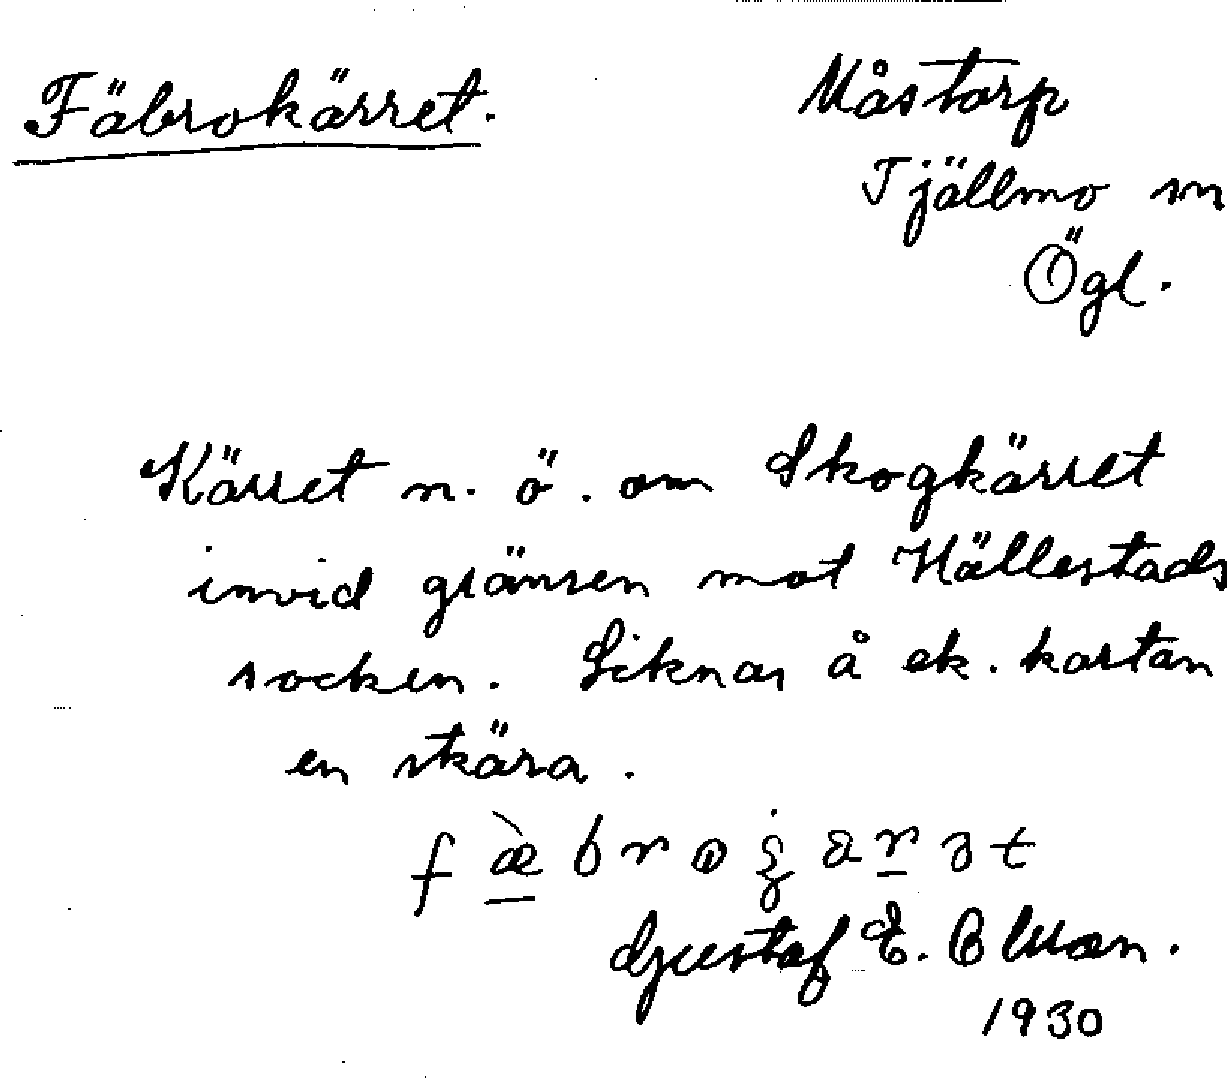 Fäbrokärret.
Måstorp
Tjällmo sn
Ögl.
Kärret n. ö. om Skogkärret
invid gränsen mot Hällestads
socken. Liknar å ek. kartan
en skära.
Gustaf E.
1930